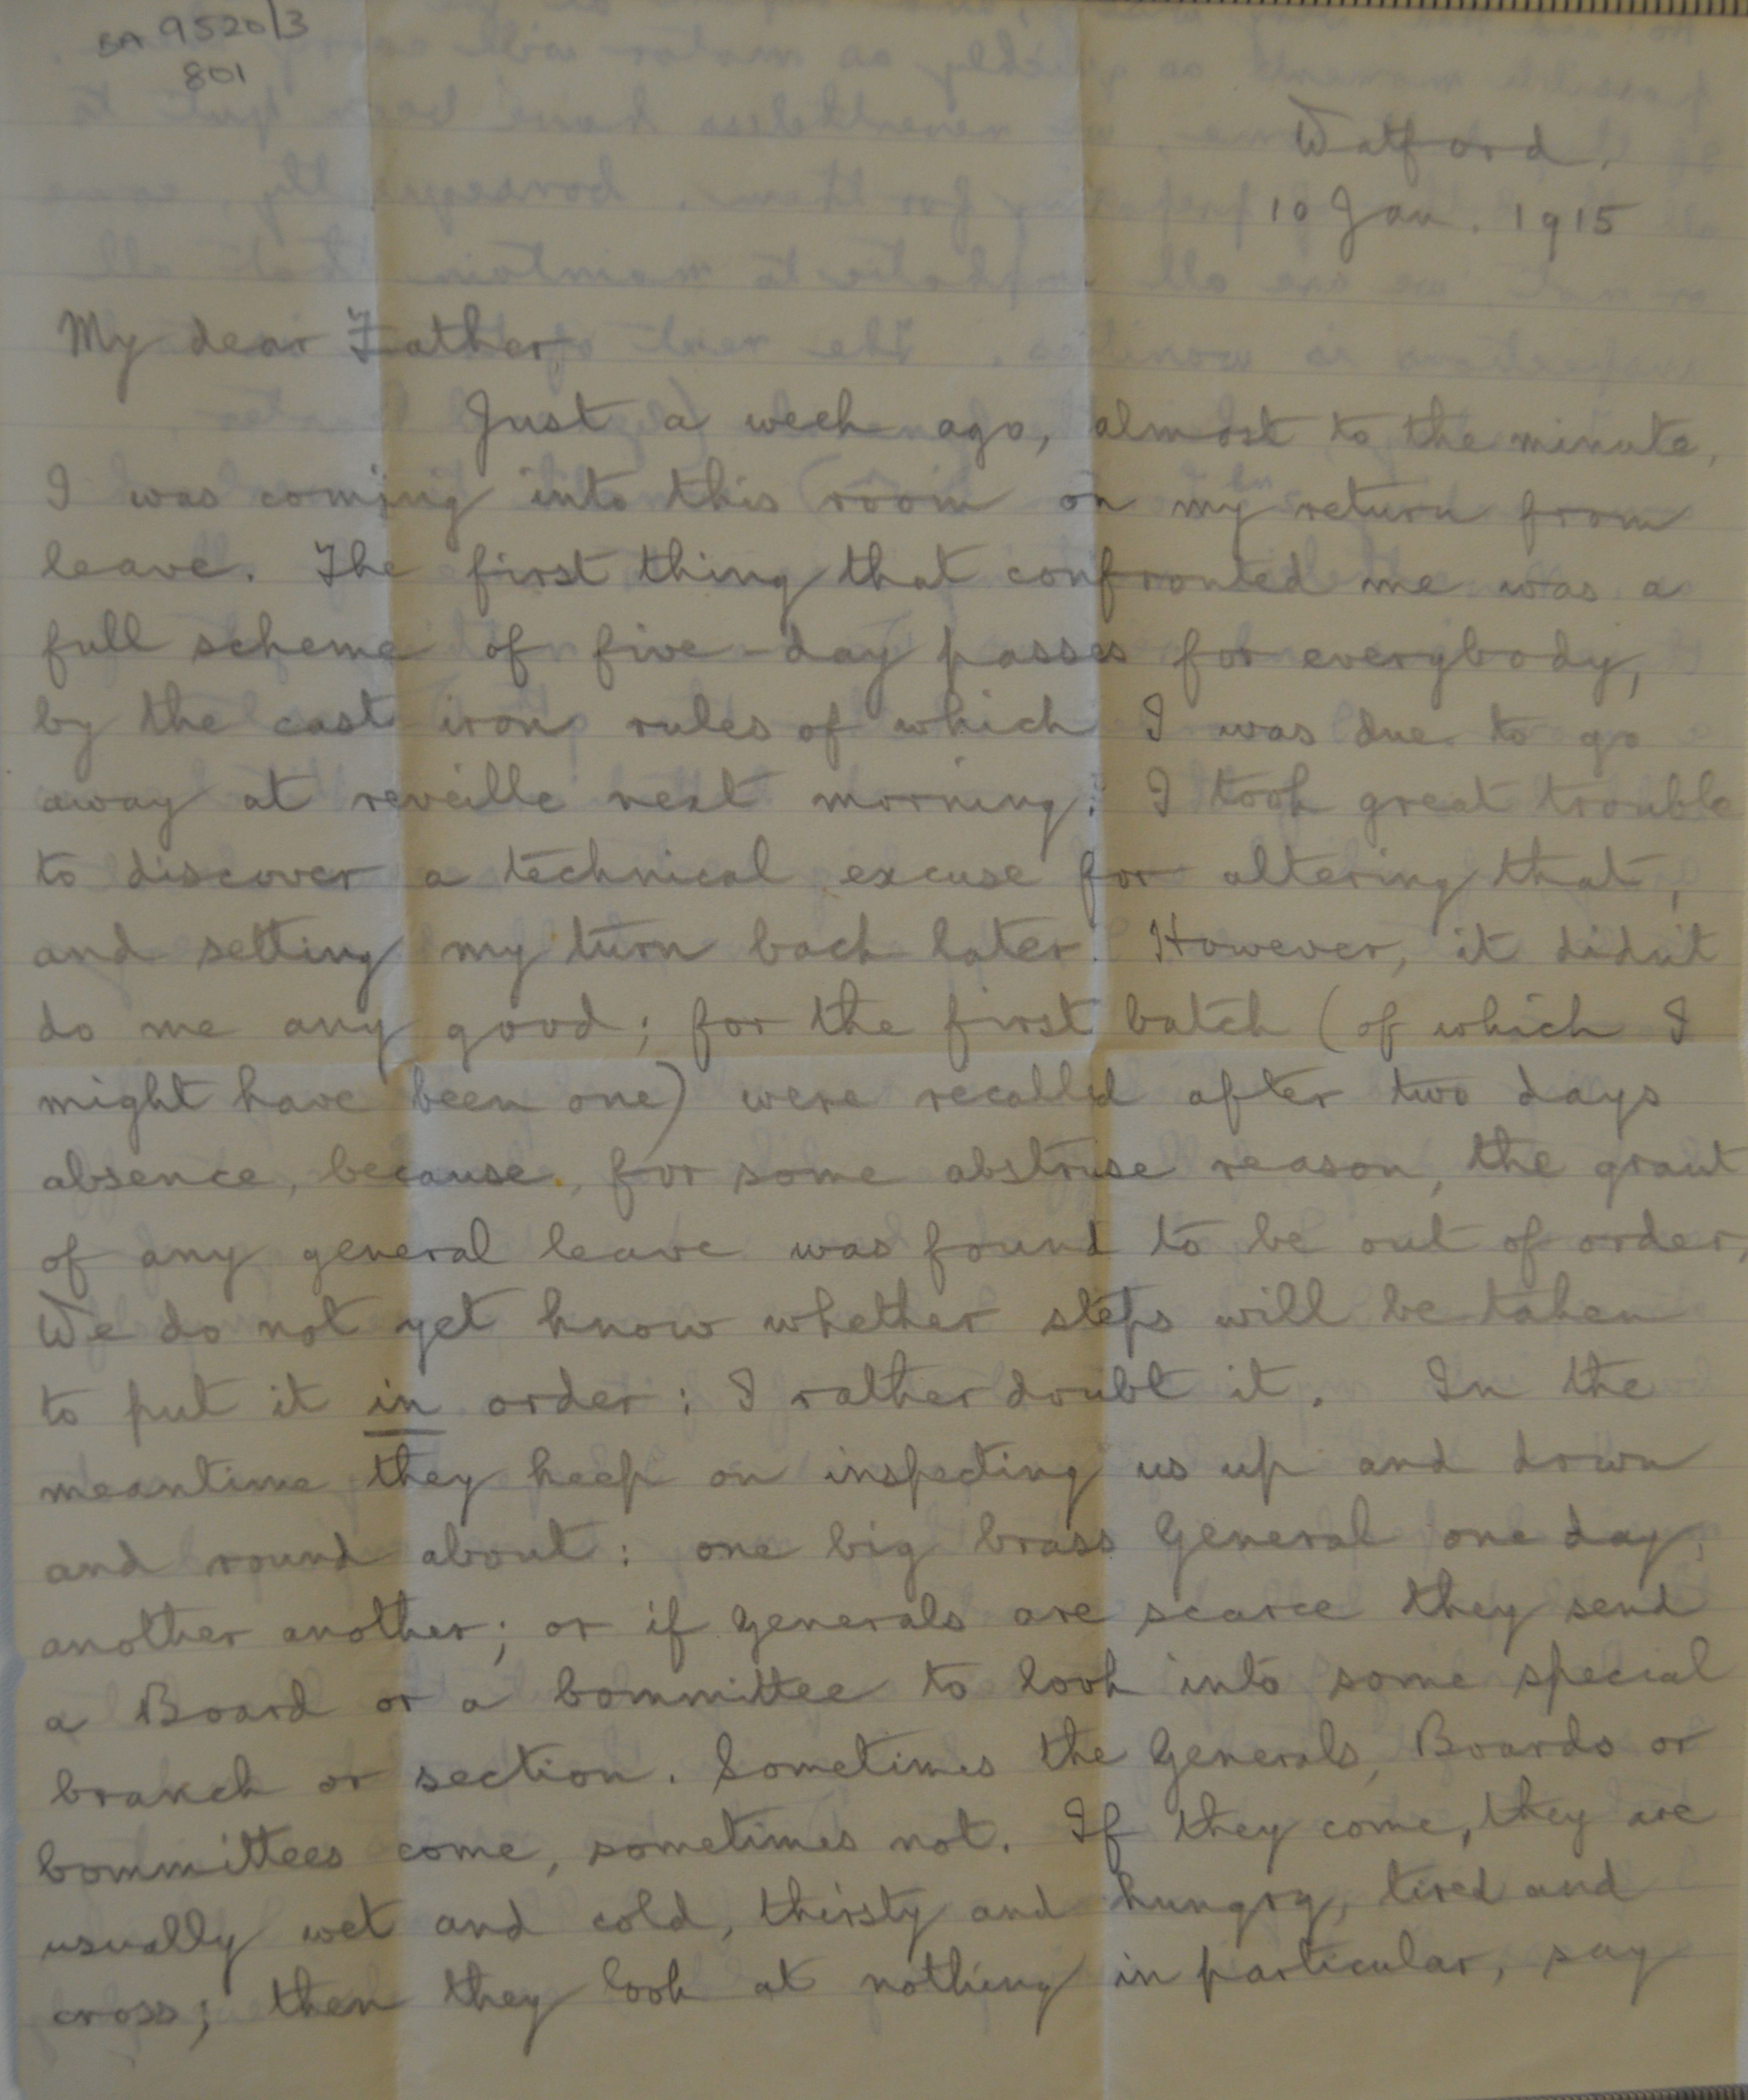 BA 9520/3
801
Watford,
10 Jan. 1915
My dear Father,
Just a week ago, almost to the minute,
I was coming into this room on my return from
leave. The first thing that confronted me was a
full scheme of five-day passes for everybody,
by the cast iron rules of which I was due to go
away at reveille next morning. I took great trouble
to discover a technical excuse for altering that,
and setting my turn back later. However, it didn't
do me any good; for the first batch (of which I
might have been one) were recalled after two days
absence, because, for some abstruse reason, the grant
of any general leave was found to be out of order,
We do not yet know whether steps will be taken
to put it in order: I rather doubt it. In the
meantime they keep on inspecting us up and down
and round about: one big brass General one day,
another another; or if Generals are scarce they send
a Board or a Committee to look into some special
branch or section. Sometimes the Generals, Boards or
Committees come, sometimes not. If they come, they are
usually wet and cold, thirsty and hungry, tired and
cross; then they look at nothing in particular, say